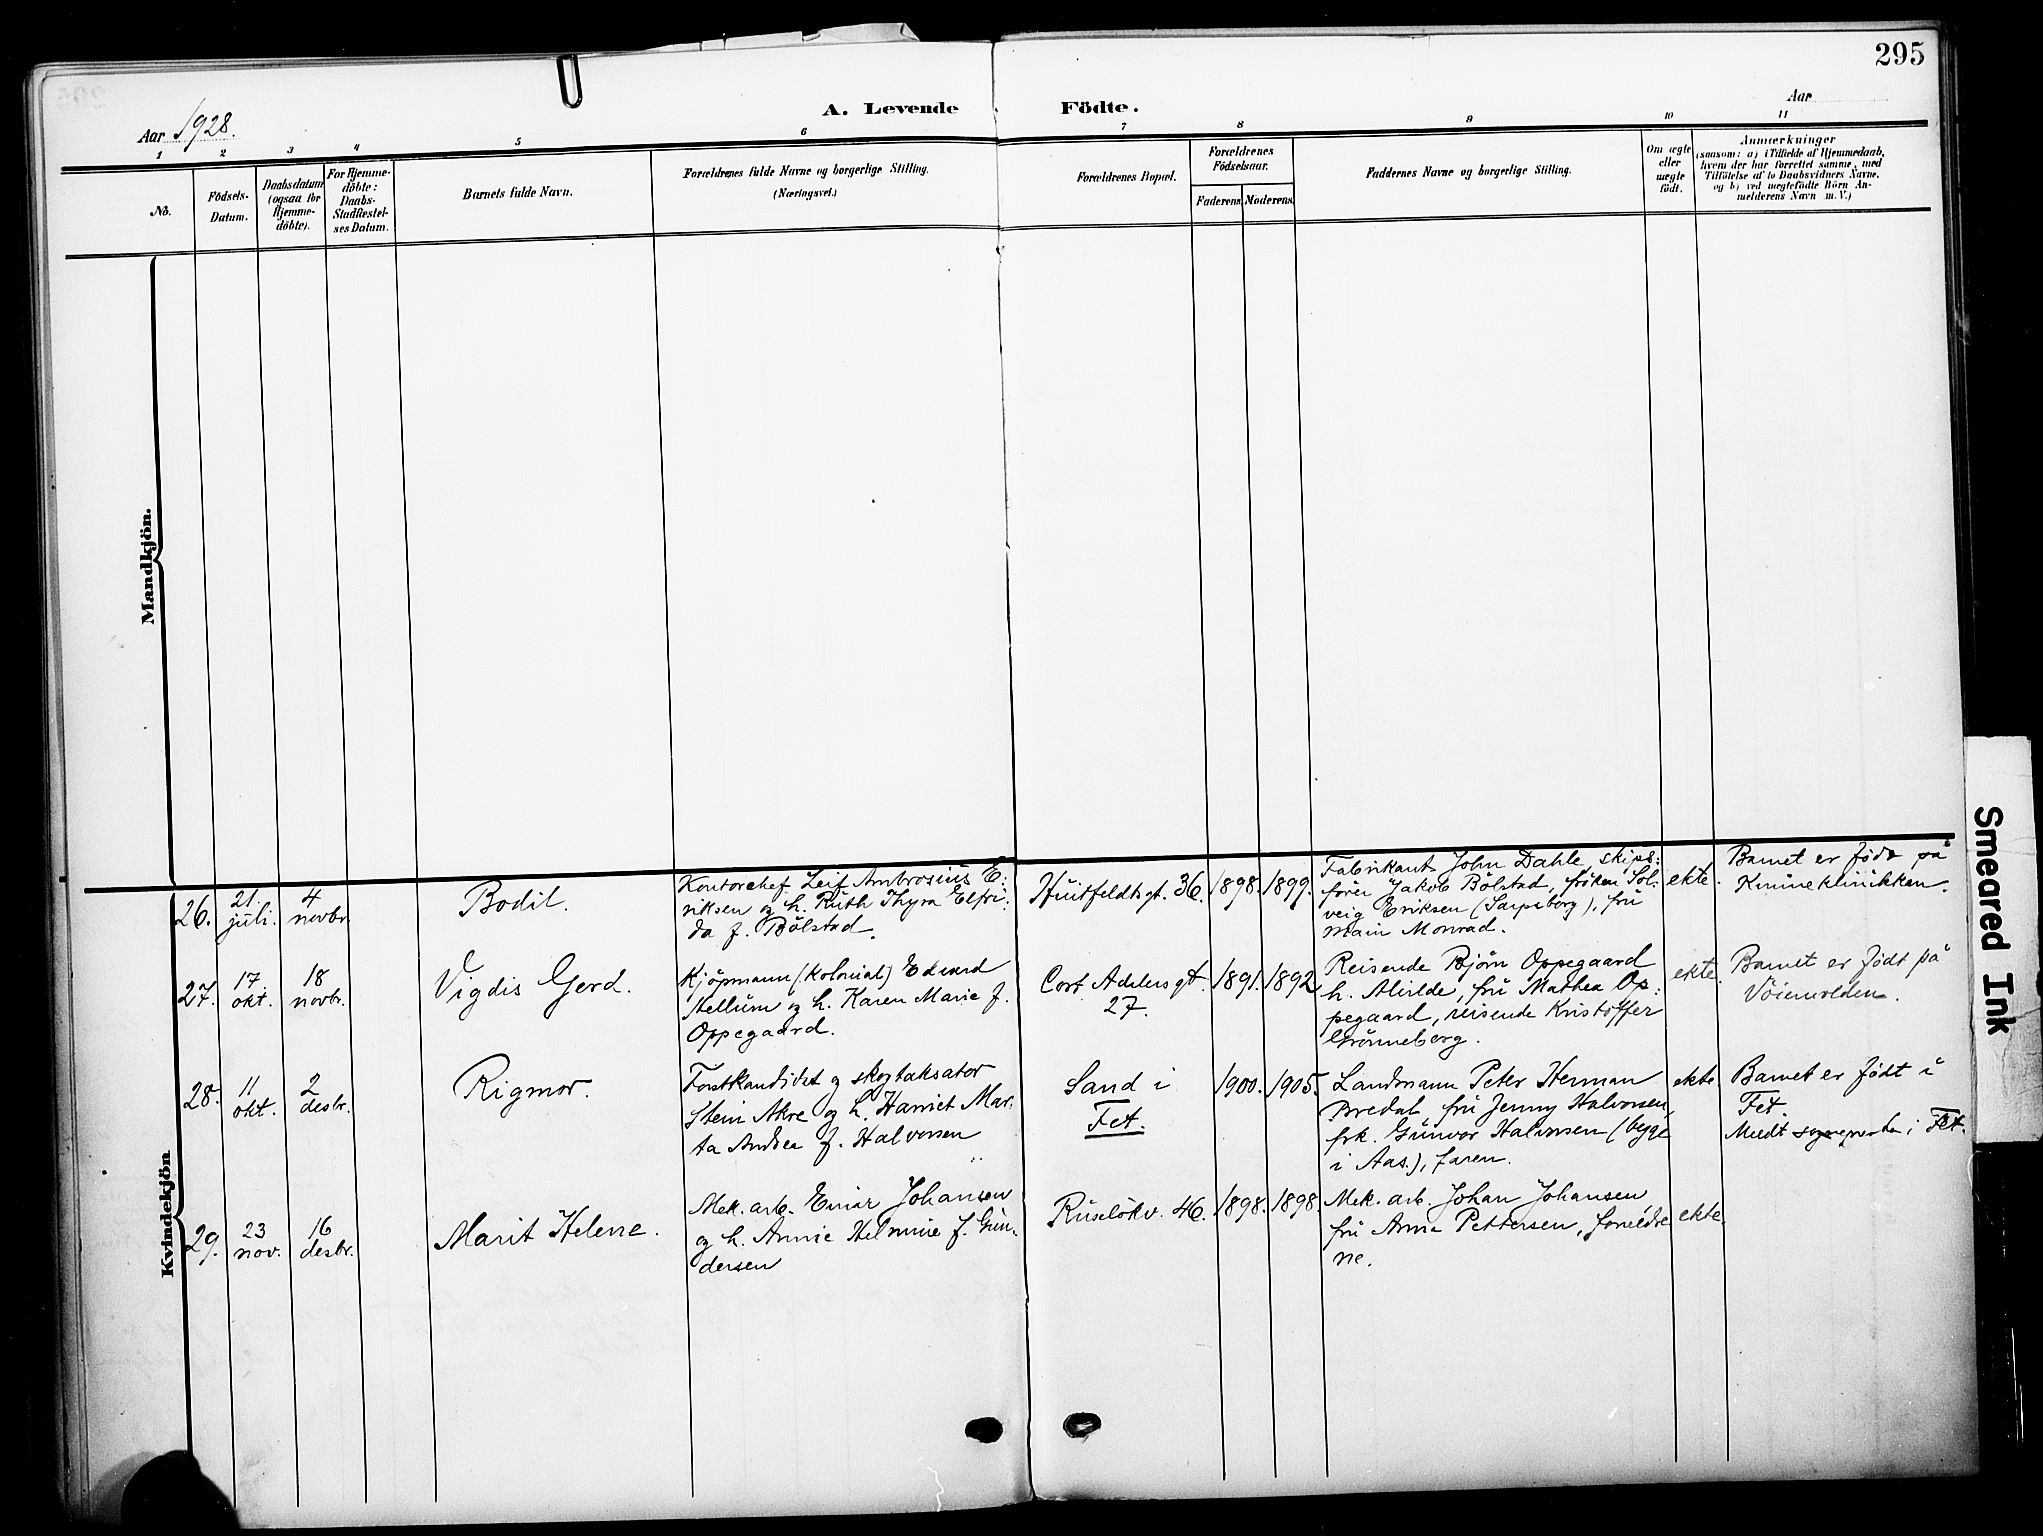 295
Aar 1928.
A. Levende Födte.
Aar
1 2 3 4 5 6 7 8 9 10 11
No.
Födsels-
Datum.
Daabsdatum
(ogsaa for
Hjemme-
döbte).
For Hjemme-
döbte:
Daabs-
Stadfæstel-
ses Datum.
Barnets fulde Navn.
Forældrenes fulde Navne og borgerlige Stilling.
(Næringsvei.)
Forældrenes Bopæl.
Forældrenes
Födselsaar.
Faderens. Moderens.
Faddernes Navne og borgerlige Stilling.
Om ægte
eller
uægte
födt.
Anmærkninger
(saasom: a) i Tilfælde af Hjemmedaab,
hvem der har forrettet samme, med
Tilföielse af to Daabsvidners Navne,
og b) ved uægtefödte Börn An-
melderens Navn m. V.)
Mandkjön.
Kvindekjön
26.
21.
juli.
4
novbr.
Bodil.
Kontorchef Leif Ambrosius E:
riksen og h. Ruth Thyra Elfri:
da f. Bölstad.
Huitfeldtsgt. 36.
1898. 1899.
Fabrikant John Dahle, skips:
förer Jakob Bölstad, fröken Sol:
veig Eriksen (Sarpsborg), fru
Main Monrad.
ekte.
Barnet er född på
Kvineklinikken.
27.
17
okt.
18
novbr.
Vigdis Gerd.
Kjöpmann (kolonial) Edvard
Hellum og h. Karen Marie f.
Oppegaard.
Cort Adelersgt.
27.
1891. 1892
Reisende Bjørn Oppegaard
h. Alvilde, fru Mathea Op:
pegaard, reisende Kristoffer
Grönneberg.
ekte.
Barnet er födt på
Vöienvolden.
28.
11
okt.
2
desbr.
Rigmor.
Forstkandidat og skogtaksator
Stein Akre og h. Harriet Mar:
ta Andrea f. Halvorsen
Sand i
Fet.
1900. 1905.
Landmann Peter Herman
Bredal, fru Jenny Halvorsen,
frk. Gunvor Halvorsen (begge
i Aas.), faren.
ekte
Barnet er födt i
Fet.
Meldt sognepresten i Fet.
29.
23
nov.
16
desbr.
Marit Helene.
Mek. arb. Einar Johansen
og h. Annie Helmine f. Gun-
dersen
Ruselökv. 46.
1898. 1898.
Mek. arb. Johan Johansen
fru Anna Pettersen, foreldre
ne.
ekte.
Smeared Ink